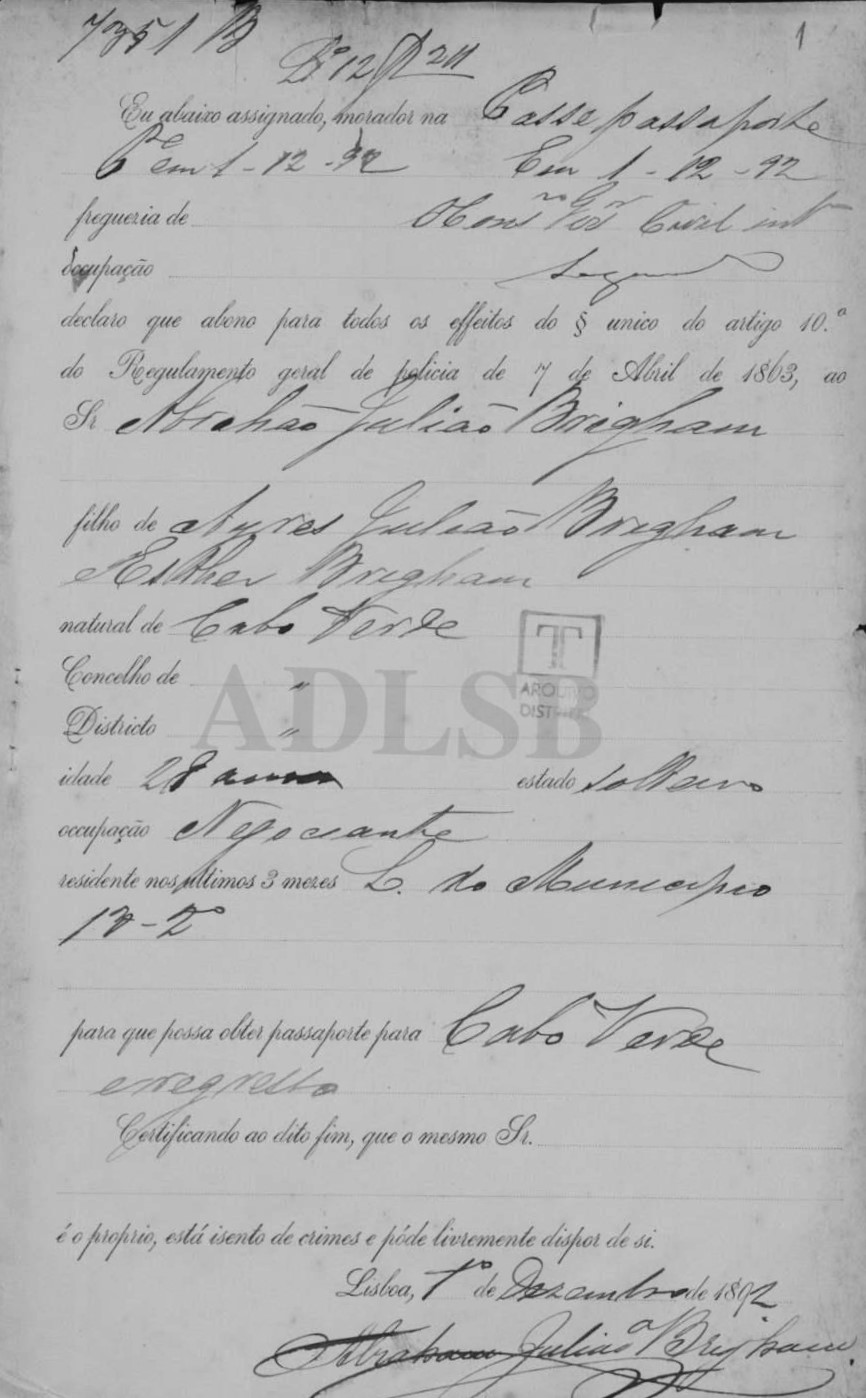 7351 B
1
Lº 12
Eu abaixo assignado, morador na Passe passaporte
Pº em 1-12-92 Em 1-12-92
freguezia de Civil
occupação
declaro que abono para todos os effeitos do § unico do artigo 10.º
do Regulamento geral de policia de 7 de Abril de 1863, ao
Sr Abrahão Julião Brigham
filho de Ayres Julião Brigham
Esther Brigham
natural de Cabo Verde
Concelho de "
Districto "
idade 28 annos estado solteiro
occupação Negociante
residente nos ultimos 3 mezes L. do Municipio
13-2º
para que possa obter passaporte para Cabo Verde
e regresso
Certificando ao dito fim, que o mesmo Sr.
é o proprio, está isento de crimes e póde livremente dispor de si.
Lisboa, 1º de Dezembro de 1892
Abraham Julião Brigham
ADLSB
T
ARQUIVO